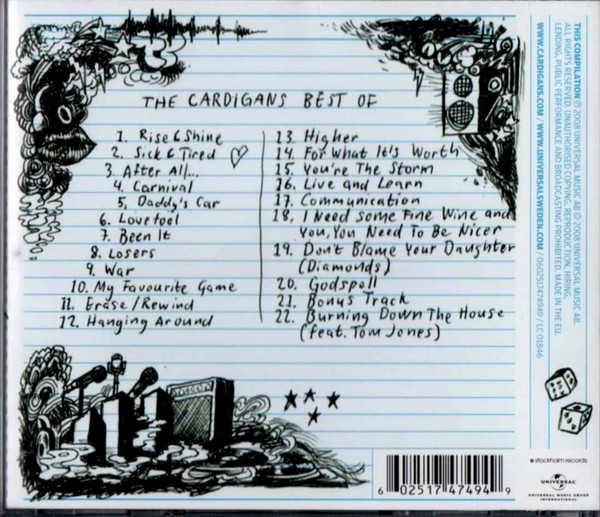 THE CARDIGANS BEST OF
1. Rise & Shine
2. Sick & Tired
3. After All...
4. Carnival
5. Daddy's Car
6. Lovefool
7. Been It
8. Losers
9. War
10. My Favourite Game
11. Erase/Rewind
12. Hanging Around
13. Higher
14. For What It's Worth
15. You're The Storm
16. Live and Learn
17. Communication
18. I Need Some Fine Wine and
You, You Need To Be Nicer
19. Don't Blame Your Daughter
(Diamonds)
20. Godspell
21. Bonus Track
22. Burning Down The House
(feat. Tom Jones)
THIS COMPILATION ℗ 2008 UNIVERSAL MUSIC AB © 2008 UNIVERSAL MUSIC AB.
ALL RIGHTS RESERVED. UNAUTHORISED COPYING, REPRODUCTION, HIRING,
LENDING, PUBLIC PERFORMANCE AND BROADCASTING PROHIBITED. MADE IN THE EU.
WWW.CARDIGANS.COM / WWW.UNIVERSALSWEDEN.COM / 0602517474949 / LC 01846
stockholm records
UNIVERSAL
UNIVERSAL MUSIC GROUP
INTERNATIONAL
6 02517 47494 9